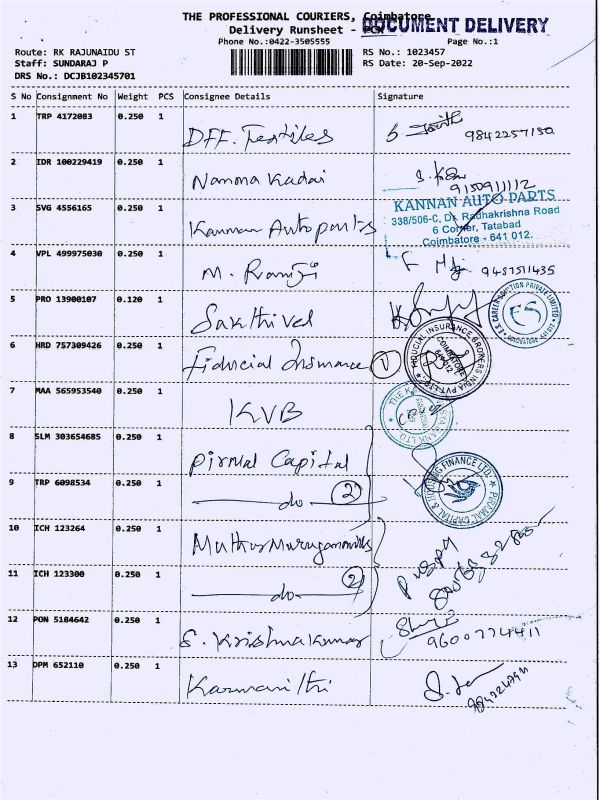 THE PROFESSIONAL COURIERS, Coimbatore
DOCUMENT DELIVERY
Delivery Runsheet - PCX
Phone No.:0422-3505555
Page No.:1
Route: RK RAJUNAIDU ST
RS No.: 1023457
Staff: SUNDARAJ P
RS Date: 20-Sep-2022
DRS No.: DCJB102345701
S No Consignment No Weight PCS Consignee Details Signature
1 TRP 4172083 0.250 1 DFF. Textiles 9842257150
2 IDR 100229419 0.250 1 Namma Kadai 9150911112
KANNAN AUTO PARTS
338/506-C, Dr. Radhakrishna Road
6 Corner, Tatabad
Coimbatore - 641 012.
3 SVG 4556165 0.250 1 Kannan Autoparts
4 VPL 499975030 0.250 1 M. Ramji 9487511435
5 PRO 13900107 0.120 1 Sakthivel
E.S. CAREER SOLUTION PRIVATE LIMITED
ES
6 HRD 757309426 0.250 1 Fiducial Insurance 1
FIDUCIAL INSURANCE BROKERS INDIA PVT LTD
COIMBATORE
641 012
7 MAA 565953540 0.250 1 KVB
8 SLM 303654685 0.250 1 Pirmal Capital
9 TRP 6098534 0.250 1 do 2
PIRAMAL CAPITAL & HOUSING FINANCE LTD
10 ICH 123264 0.250 1
11 ICH 123300 0.250 1 do 2
12 PON 5184642 0.250 1 S. Krishnakumar 9600774411
13 DPM 652110 0.250 1